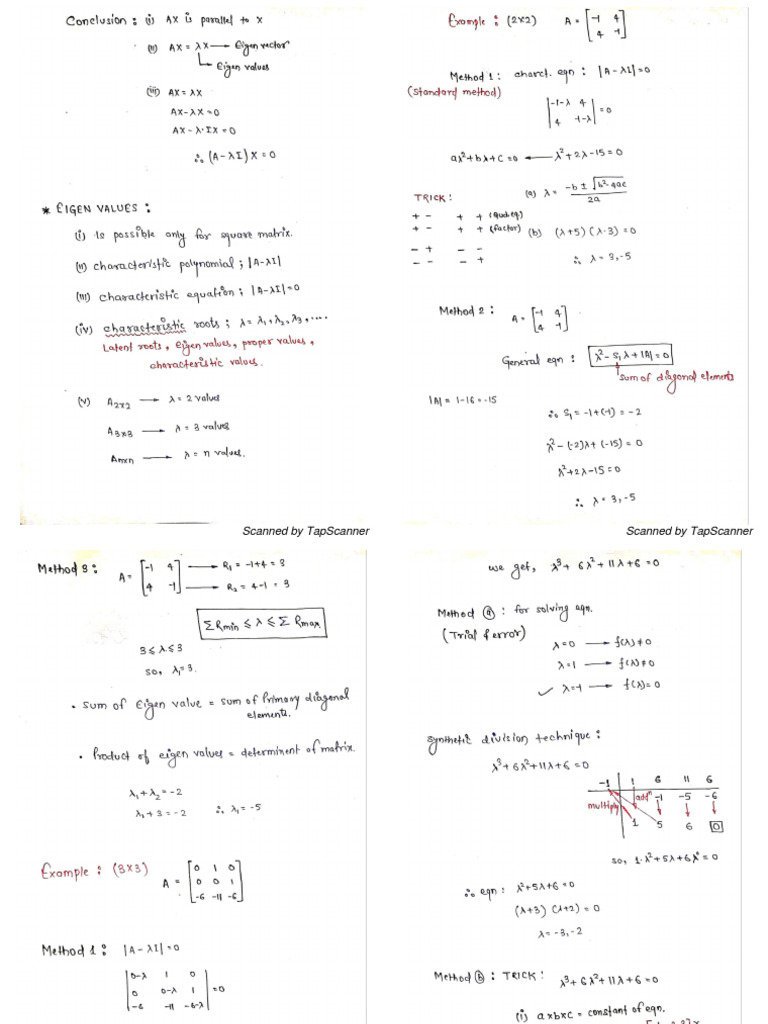 Conclusion: (i) AX is parallel to X
(ii) AX = λX → Eigen vector
→ Eigen values
(iii) AX = λX
AX - λX = 0
AX - λ·IX = 0
∴ (A-λI) X = 0
* EIGEN VALUES:
(i) Is possible only for square matrix.
(ii) characteristic polynomial ; |A-λI|
(iii) characteristic equation ; |A-λI|=0
(iv) characteristic roots ; λ = λ1, λ2, λ3, ....
Latent roots, Eigen values, proper values,
characteristic values.
(v) A2x2 → λ = 2 values
A3x3 → λ = 3 values
Amxn → λ = n values.
Scanned by TapScanner
Example : (2x2) A = [-1 4
4 -1]
Method 1: charct. eqn : |A-λI|=0
(Standard method)
|-1-λ 4
4 -1-λ| =0
aλ²+bλ+c=0 ← λ²+2λ-15=0
(a) λ = -b ± √b²-4ac
2a
TRICK:
+ - + + (Quad eq)
+ - + + (factor)
- + - -
- - - +
(b) (λ+5) (λ-3) = 0
∴ λ = 3, -5
Method 2: A = [-1 4
4 -1]
General eqn : λ² - S1 λ + |A| = 0
sum of diagonal elements
|A| = 1-16 = -15
∴ S1 = -1+(-1) = -2
λ² - (-2)λ + (-15) = 0
λ²+2λ-15=0
∴ λ = 3, -5
Scanned by TapScanner
Method 3: A = [-1 4
4 -1]
→ R1 = -1+4 = 3
→ R2 = 4-1 = 3
Σ Rmin ≤ λ ≤ Σ Rmax
3 ≤ λ ≤ 3
so, λ1=3.
• sum of Eigen value = sum of Primary diagonal
elements.
• Product of eigen values = determinent of matrix.
λ1 + λ2 = -2
λ1 + 3 = -2 ∴ λ1 = -5
Example : (3x3) A = [0 1 0
0 0 1
-6 -11 -6]
Method 1: |A-λI| =0
|0-λ 1 0
0 0-λ 1
-6 -11 -6-λ| =0
we get, λ³+ 6λ²+11λ+6=0
Method (a) : for solving eqn.
(Trial & error)
λ=0 → f(λ)≠0
λ=1 → f(λ)≠0
✓ λ=-1 → f(λ)=0
Synthetic division technique :
λ³+6λ²+11λ+6=0
-1 | 1 6 11 6
multiply addn -1 -5 -6
1 5 6 0
so, 1·λ²+5λ+6λ⁰=0
∴ eqn : λ²+5λ+6=0
(λ+3) (λ+2) = 0
λ = -3, -2
Method (b) : TRICK: λ³+6λ²+11λ+6=0
(i) axbxc = constant of eqn.